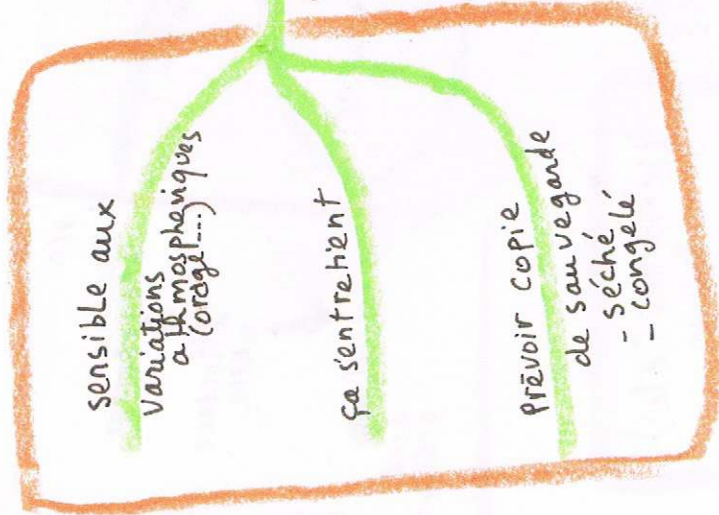 sensible aux
variations
athmosphériques
(orage...)
ça s'entretient
Prévoir copie
de sauvegarde
- séché
- congelé